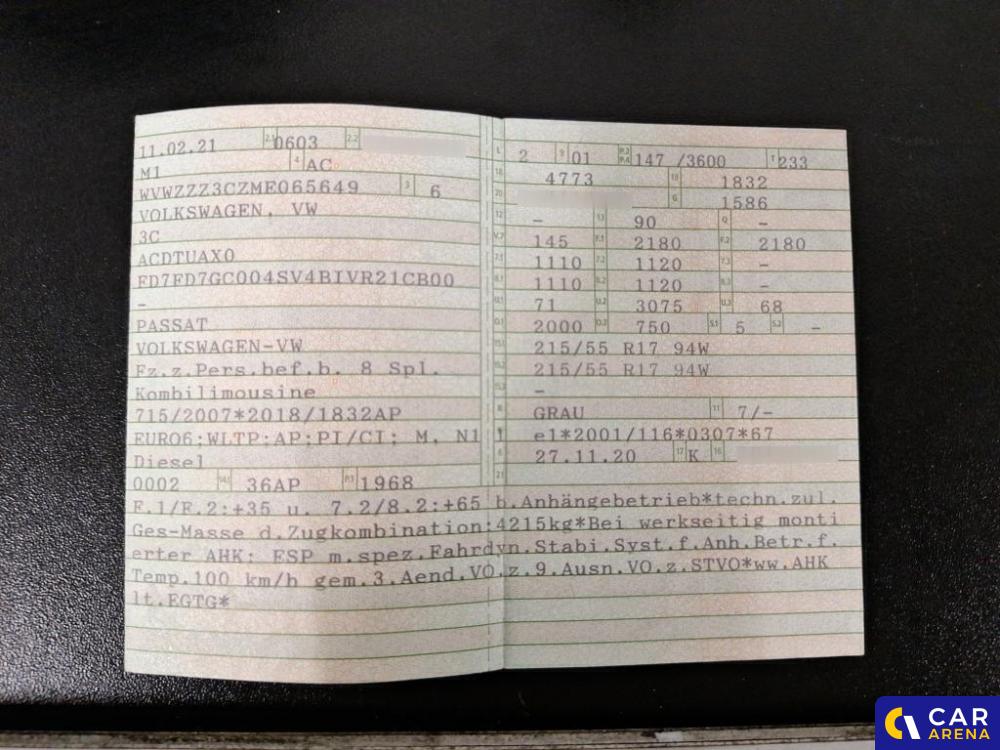 11.02.21 2.1 0603 2.2
M1 4 AC
WVWZZZ3CZME065649 3 6
VOLKSWAGEN, VW
3C
ACDTUAX0
FD7FD7GC004SV4BIVR21CB00
-
PASSAT
VOLKSWAGEN-VW
Fz.z.Pers.bef.b. 8 Spl.
Kombilimousine
715/2007*2018/1832AP
EURO6;WLTP;AP;PI/CI; M, N1 I
Diesel
0002 14.1 36AP P.1 1968
L 2 9 01 P.2 P.4 147 /3600 T 233
18 4773 19 1832
20 G 1586
12 - 13 90 Q -
V.7 145 F.1 2180 F.2 2180
7.1 1110 7.2 1120 7.3 -
8.1 1110 8.2 1120 8.3 -
U.1 71 U.2 3075 U.3 68
O.1 2000 O.2 750 S.1 5 S.2 -
15.1 215/55 R17 94W
15.2 215/55 R17 94W
15.3 -
R GRAU 11 7/-
K e1*2001/116*0307*67
6 27.11.20 17 K 16
21
F.1/F.2:+35 u. 7.2/8.2:+65 b.Anhängebetrieb*techn.zul.
Ges-Masse d.Zugkombination:4215kg*Bei werkseitig monti
erter AHK: ESP m.spez.Fahrdyn.Stabi.Syst.f.Anh.Betr.f.
Temp.100 km/h gem.3.Aend.VO.z.9.Ausn.VO.z.STVO*ww.AHK
lt.EGTG*
CAR
ARENA